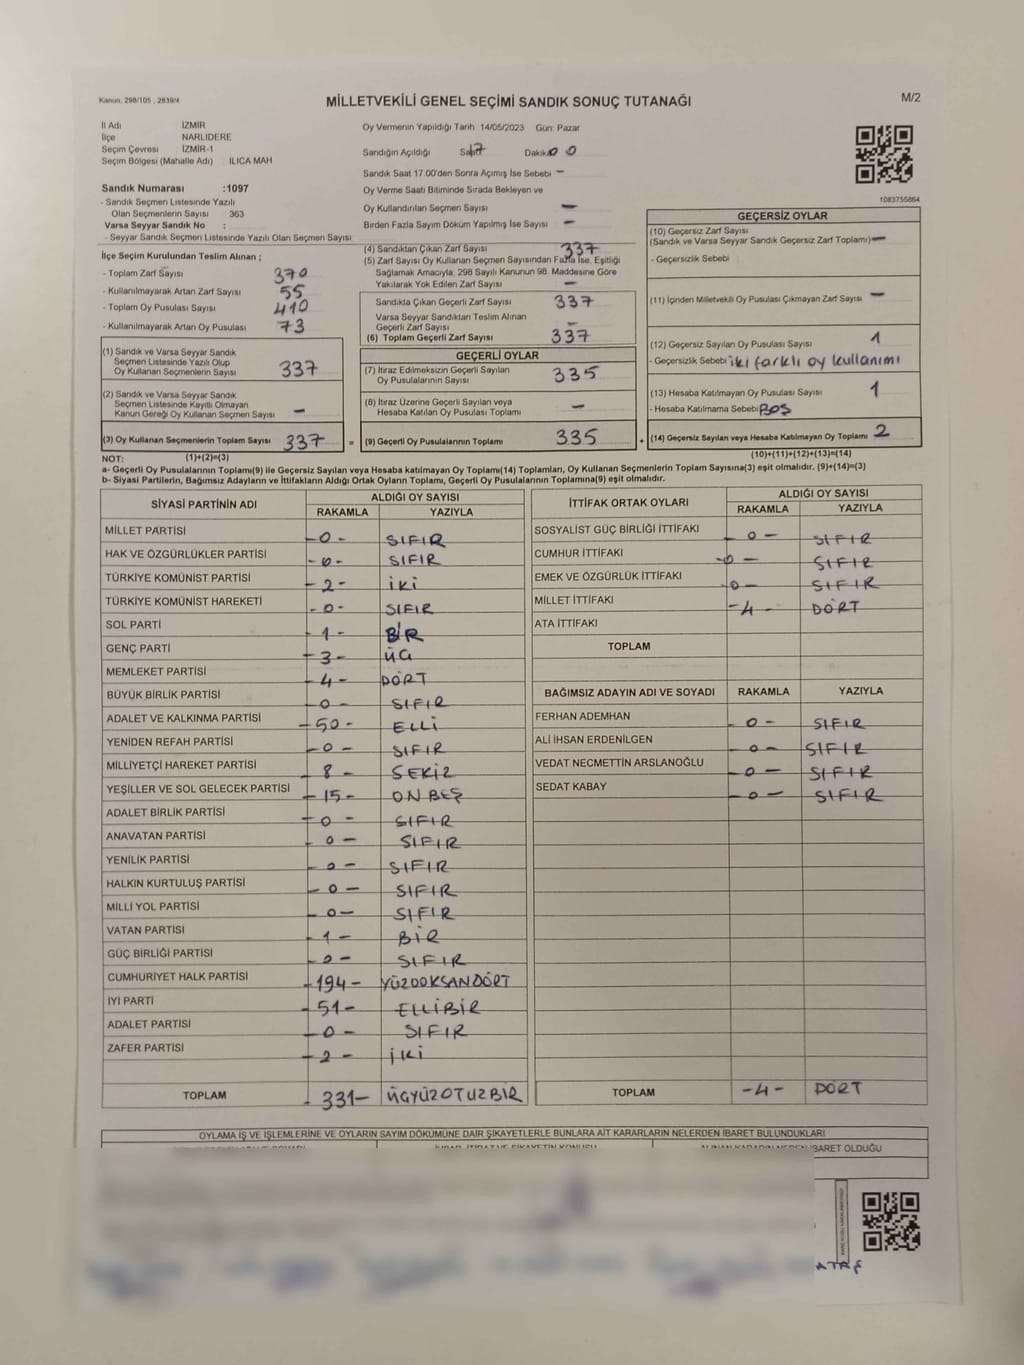 Kanun, 298/105 , 2839/4
MİLLETVEKİLİ GENEL SEÇİMİ SANDIK SONUÇ TUTANAĞI
M/2
İl Adı İZMİR
İlçe NARLIDERE
Seçim Çevresi İZMİR-1
Seçim Bölgesi (Mahalle Adı) ILICA MAH
Sandık Numarası :1097
- Sandık Seçmen Listesinde Yazılı
Olan Seçmenlerin Sayısı : 363
Varsa Seyyar Sandık No :
- Seyyar Sandık Seçmen Listesinde Yazılı Olan Seçmen Sayısı:
İlçe Seçim Kurulundan Teslim Alınan ;
- Toplam Zarf Sayısı 370
- Kullanılmayarak Artan Zarf Sayısı 55
- Toplam Oy Pusulası Sayısı 410
- Kullanılmayarak Artan Oy Pusulası 73
(1) Sandık ve Varsa Seyyar Sandık
Seçmen Listesinde Yazılı Olup
Oy Kullanan Seçmenlerin Sayısı 337
(2) Sandık ve Varsa Seyyar Sandık
Seçmen Listesinde Kayıtlı Olmayan
Kanun Gereği Oy Kullanan Seçmen Sayısı -
(3) Oy Kullanan Seçmenlerin Toplam Sayısı 337 =
Oy Vermenin Yapıldığı Tarih 14/05/2023 Gün: Pazar
Sandığın Açıldığı Saat 17 Dakika 00
Sandık Saat 17.00'den Sonra Açımış İse Sebebi -
Oy Verme Saati Bitiminde Sırada Bekleyen ve
Oy Kullandırılan Seçmen Sayısı -
Birden Fazla Sayım Döküm Yapılmış İse Sayısı -
(4) Sandıktan Çıkan Zarf Sayısı 337
(5) Zarf Sayısı Oy Kullanan Seçmen Sayısından Fazla İse, Eşitliği
Sağlamak Amacıyla, 298 Sayılı Kanunun 98. Maddesine Göre
Yakılarak Yok Edilen Zarf Sayısı -
Sandıkta Çıkan Geçerli Zarf Sayısı 337
Varsa Seyyar Sandıktan Teslim Alınan
Geçerli Zarf Sayısı -
(6) Toplam Geçerli Zarf Sayısı 337
GEÇERLİ OYLAR
(7) İtiraz Edilmeksizin Geçerli Sayılan
Oy Pusulalarının Sayısı 335
(8) İtiraz Üzerine Geçerli Sayılan veya
Hesaba Katılan Oy Pusulası Toplamı -
(9) Geçerli Oy Pusulalarının Toplamı 335 +
1083755864
GEÇERSİZ OYLAR
(10) Geçersiz Zarf Sayısı
(Sandık ve Varsa Seyyar Sandık Geçersiz Zarf Toplamı) -
- Geçersizlik Sebebi
(11) İçinden Milletvekili Oy Pusulası Çıkmayan Zarf Sayısı -
(12) Geçersiz Sayılan Oy Pusulası Sayısı 1
- Geçersizlik Sebebi iki farklı oy kullanımı
(13) Hesaba Katılmayan Oy Pusulası Sayısı 1
- Hesaba Katılmama Sebebi BOŞ
(14) Geçersiz Sayılan veya Hesaba Katılmayan Oy Toplamı 2
NOT: (1)+(2)=(3) (10)+(11)+(12)+(13)=(14)
a- Geçerli Oy Pusulalarının Toplamı(9) ile Geçersiz Sayılan veya Hesaba katılmayan Oy Toplamı(14) Toplamları, Oy Kullanan Seçmenlerin Toplam Sayısına(3) eşit olmalıdır. (9)+(14)=(3)
b- Siyasi Partilerin, Bağımsız Adayların ve İttifakların Aldığı Ortak Oyların Toplamı, Geçerli Oy Pusulalarının Toplamına(9) eşit olmalıdır.
SİYASİ PARTİNİN ADI ALDIĞI OY SAYISI
RAKAMLA YAZIYLA
MİLLET PARTİSİ -0- SIFIR
HAK VE ÖZGÜRLÜKLER PARTİSİ -0- SIFIR
TÜRKİYE KOMÜNİST PARTİSİ -2- İKİ
TÜRKİYE KOMÜNİST HAREKETİ -0- SIFIR
SOL PARTİ -1- BİR
GENÇ PARTİ -3- ÜÇ
MEMLEKET PARTİSİ -4- DÖRT
BÜYÜK BİRLİK PARTİSİ -0- SIFIR
ADALET VE KALKINMA PARTİSİ -50- ELLİ
YENİDEN REFAH PARTİSİ -0- SIFIR
MİLLİYETÇİ HAREKET PARTİSİ -8- SEKİZ
YEŞİLLER VE SOL GELECEK PARTİSİ -15- ONBEŞ
ADALET BİRLİK PARTİSİ -0- SIFIR
ANAVATAN PARTİSİ -0- SIFIR
YENİLİK PARTİSİ -0- SIFIR
HALKIN KURTULUŞ PARTİSİ -0- SIFIR
MİLLİ YOL PARTİSİ -0- SIFIR
VATAN PARTİSİ -1- BİR
GÜÇ BİRLİĞİ PARTİSİ -0- SIFIR
CUMHURİYET HALK PARTİSİ -194- YÜZDOKSANDÖRT
İYİ PARTİ -51- ELLİBİR
ADALET PARTİSİ -0- SIFIR
ZAFER PARTİSİ -2- İKİ
TOPLAM -331- ÜÇYÜZOTUZBİR
İTTİFAK ORTAK OYLARI ALDIĞI OY SAYISI
RAKAMLA YAZIYLA
SOSYALİST GÜÇ BİRLİĞİ İTTİFAKI -0- SIFIR
CUMHUR İTTİFAKI -0- SIFIR
EMEK VE ÖZGÜRLÜK İTTİFAKI -0- SIFIR
MİLLET İTTİFAKI -4- DÖRT
ATA İTTİFAKI
TOPLAM
BAĞIMSIZ ADAYIN ADI VE SOYADI RAKAMLA YAZIYLA
FERHAN ADEMHAN -0- SIFIR
ALİ İHSAN ERDENİLGEN -0- SIFIR
VEDAT NECMETTİN ARSLANOĞLU -0- SIFIR
SEDAT KABAY -0- SIFIR
TOPLAM -4- DÖRT
OYLAMA İŞ VE İŞLEMLERİNE VE OYLARIN SAYIM DÖKÜMÜNE DAİR ŞİKAYETLERLE BUNLARA AİT KARARLARIN NELERDEN İBARET BULUNDUKLARI
İBARET OLDUĞU